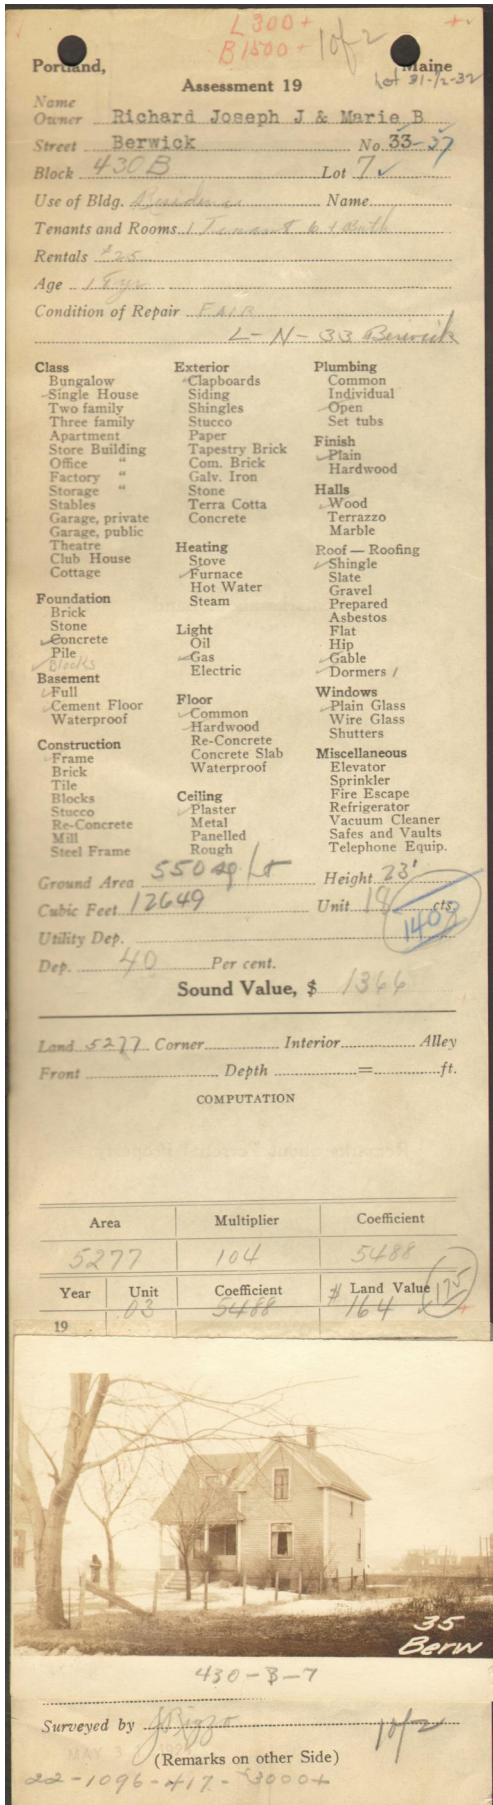 L 300+
B 1500+ 1 of 2
Portland, Maine
Assessment 19 Lot 31-1/2-32
Name
Owner Richard Joseph J & Marie B
Street Berwick No. 33-37
Block 430B Lot 7
Use of Bldg. Residence Name
Tenants and Rooms 1 Tenant 6 + Bath
Rentals $25
Age 18 yr
Condition of Repair FAIR
L-N-33 Berwick
Class
Bungalow
Single House
Two family
Three family
Apartment
Store Building
Office "
Factory "
Storage "
Stables
Garage, private
Garage, public
Theatre
Club House
Cottage
Foundation
Brick
Stone
Concrete
Pile
Blocks
Basement
Full
Cement Floor
Waterproof
Construction
Frame
Brick
Tile
Blocks
Stucco
Re-Concrete
Mill
Steel Frame
Exterior
Clapboards
Siding
Shingles
Stucco
Paper
Tapestry Brick
Com. Brick
Galv. Iron
Stone
Terra Cotta
Concrete
Heating
Stove
Furnace
Hot Water
Steam
Light
Oil
Gas
Electric
Floor
Common
Hardwood
Re-Concrete
Concrete Slab
Waterproof
Ceiling
Plaster
Metal
Panelled
Rough
Plumbing
Common
Individual
Open
Set tubs
Finish
Plain
Hardwood
Halls
Wood
Terrazzo
Marble
Roof — Roofing
Shingle
Slate
Gravel
Prepared
Asbestos
Flat
Hip
Gable
Dormers 1
Windows
Plain Glass
Wire Glass
Shutters
Miscellaneous
Elevator
Sprinkler
Fire Escape
Refrigerator
Vacuum Cleaner
Safes and Vaults
Telephone Equip.
Ground Area 550 sq ft Height 23'
Cubic Feet 12649 Unit 18 cts.
Utility Dep.
Dep. 40 Per cent.
Sound Value, $ 1366
Land 5277 Corner Interior Alley
Front Depth = ft.
COMPUTATION
Area Multiplier Coefficient
5277 104 5488
Year Unit Coefficient $ Land Value 175
19 03 5488 164
35
Berw
430-B-7
Surveyed by
1 of 2
(Remarks on other Side)
22-1096-417-$3000+